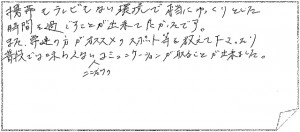 携帯もテレビもない環境で本当にゆっくりとした
時間を過ごすことが出来てよかったです。
また、界隈の方がオススメのスポット等も教えて下さったり
普段では味わえないコミュニケーションが取ることが出来ました。